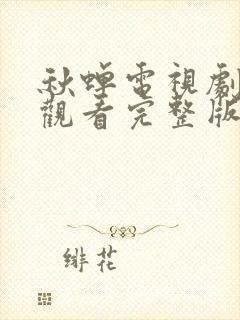 秋蟬電視劇
觀看完整版
緋花